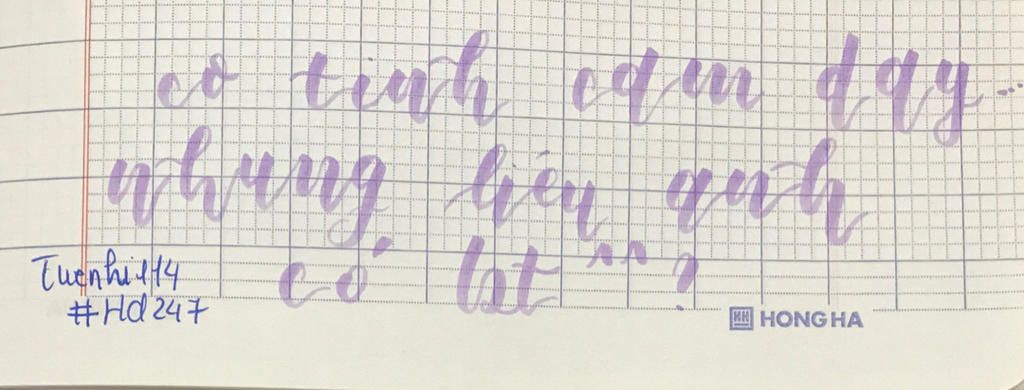 có tình cảm đấy...
nhưng liệu anh
có bt ^^ ?
Tuenhi114
#Hd247
HONG HA